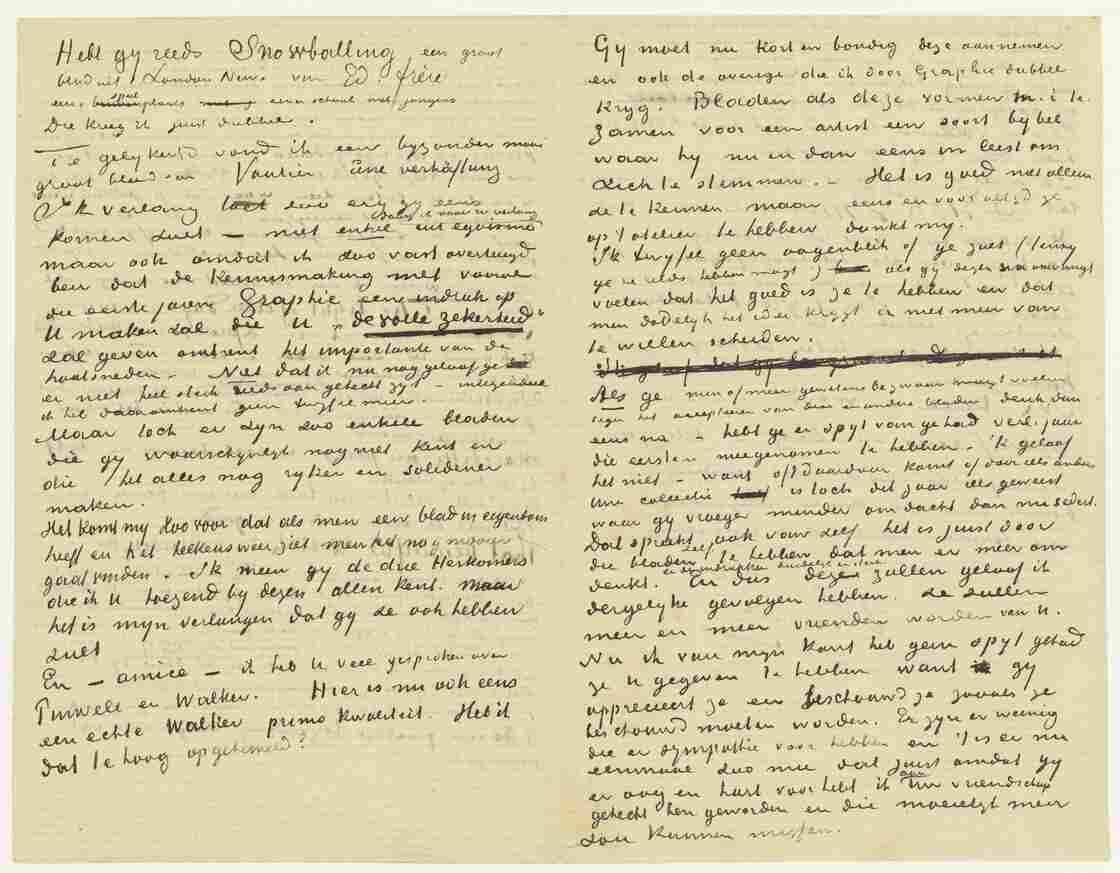 Hebt gy reeds Snowballing een groot
blad uit London News van Ed. frère
een speelplaats eener school met jongens
Die kreeg ik juist dubbel.
Te gelykertyd vond ik een byzonder mooi
groot blad van Vautier eine verhaftung
Ik verlang zoo erg gy eens
komen zult – niet enkel uit egoisme
omdat ik naar U verlang
maar ook omdat ik zoo vast overtuigd
ben dat de kennismaking met vooral
die eerste jaren Graphic een indruk op
U maken zal die U "de volle zekerheid"
zal geven omtrent het importante van de
houtsneden. Niet dat ik nu nog geloof ge
er niet heel sterk reeds aan gehecht zyt – integendeel
ik heb daaromtrent geen twyfel meer.
Maar toch er zyn zoo enkele bladen
die gy waarschynlyk nog niet kent en
die het alles nog ryker en solidener
maken.
Het komt my zoo voor dat als men een blad in eigendom
heeft en het telkens weer ziet men het nog mooier
gaat vinden. Ik meen gy de drie Herkomers
die ik U toezend by dezen allen kent. maar
het is myn verlangen dat gy ze ook hebben
zult
En – amice – ik heb U veel gesproken over
Pinwell en Walker. Hier is nu ook eens
een echte Walker primo kwaliteit. Heb ik
dat te hoog opgehemeld?
Gy moet nu kort en bondig deze aannemen
en ook de overige die ik door Graphic dubbel
kryg. Bladen als deze vormen m.i. te
zamen voor een artist een soort bybel
waar hy nu en dan eens in leest om
zich te stemmen. – Het is goed niet alleen
ze te kennen maar eens en voor altyd ze
op 't atelier te hebben dunkt my.
Ik twyfel geen oogenblik of ge zult (tenzy
ge ze reeds hebben mogt) als gy dezen ontvangt
voelen dat het goed is ze te hebben en dat
men dadelyk het idee krygt er niet meer van
te willen scheiden.
Als ge min of meer gemoedsbezwaar mogt voelen
tegen het accepteren van deze en andere bladen denk dan
eens na – hebt ge er spyt van gehad verl. jaar
die eersten meegenomen te hebben. – 'k geloof
het niet – want of 't daardoor komt of door iets anders
Uwe collectie is toch dit jaar iets geweest
waar gy vroeger minder om dacht dan nu sedert.
Dat spreekt ook van zelf het is juist door
die bladen zelf te hebben dat men er meer om
denkt. En dus deze zullen geloof ik
dergelyke gevolgen hebben. Ze zullen
meer en meer vrienden worden van U.
Nu ik van myn kant heb geen spyt gehad
ze U gegeven te hebben want gy
apprecieert ze en beschouwd ze zooals ze
beschouwd moeten worden. Er zyn er weinig
die er sympathie voor hebben en 't is er nu
eenmaal zoo mee dat juist omdat gy
er oog en hart voor hebt ik aan Uw vriendschap
gehecht ben geworden en die moeielyk meer
zou kunnen missen.